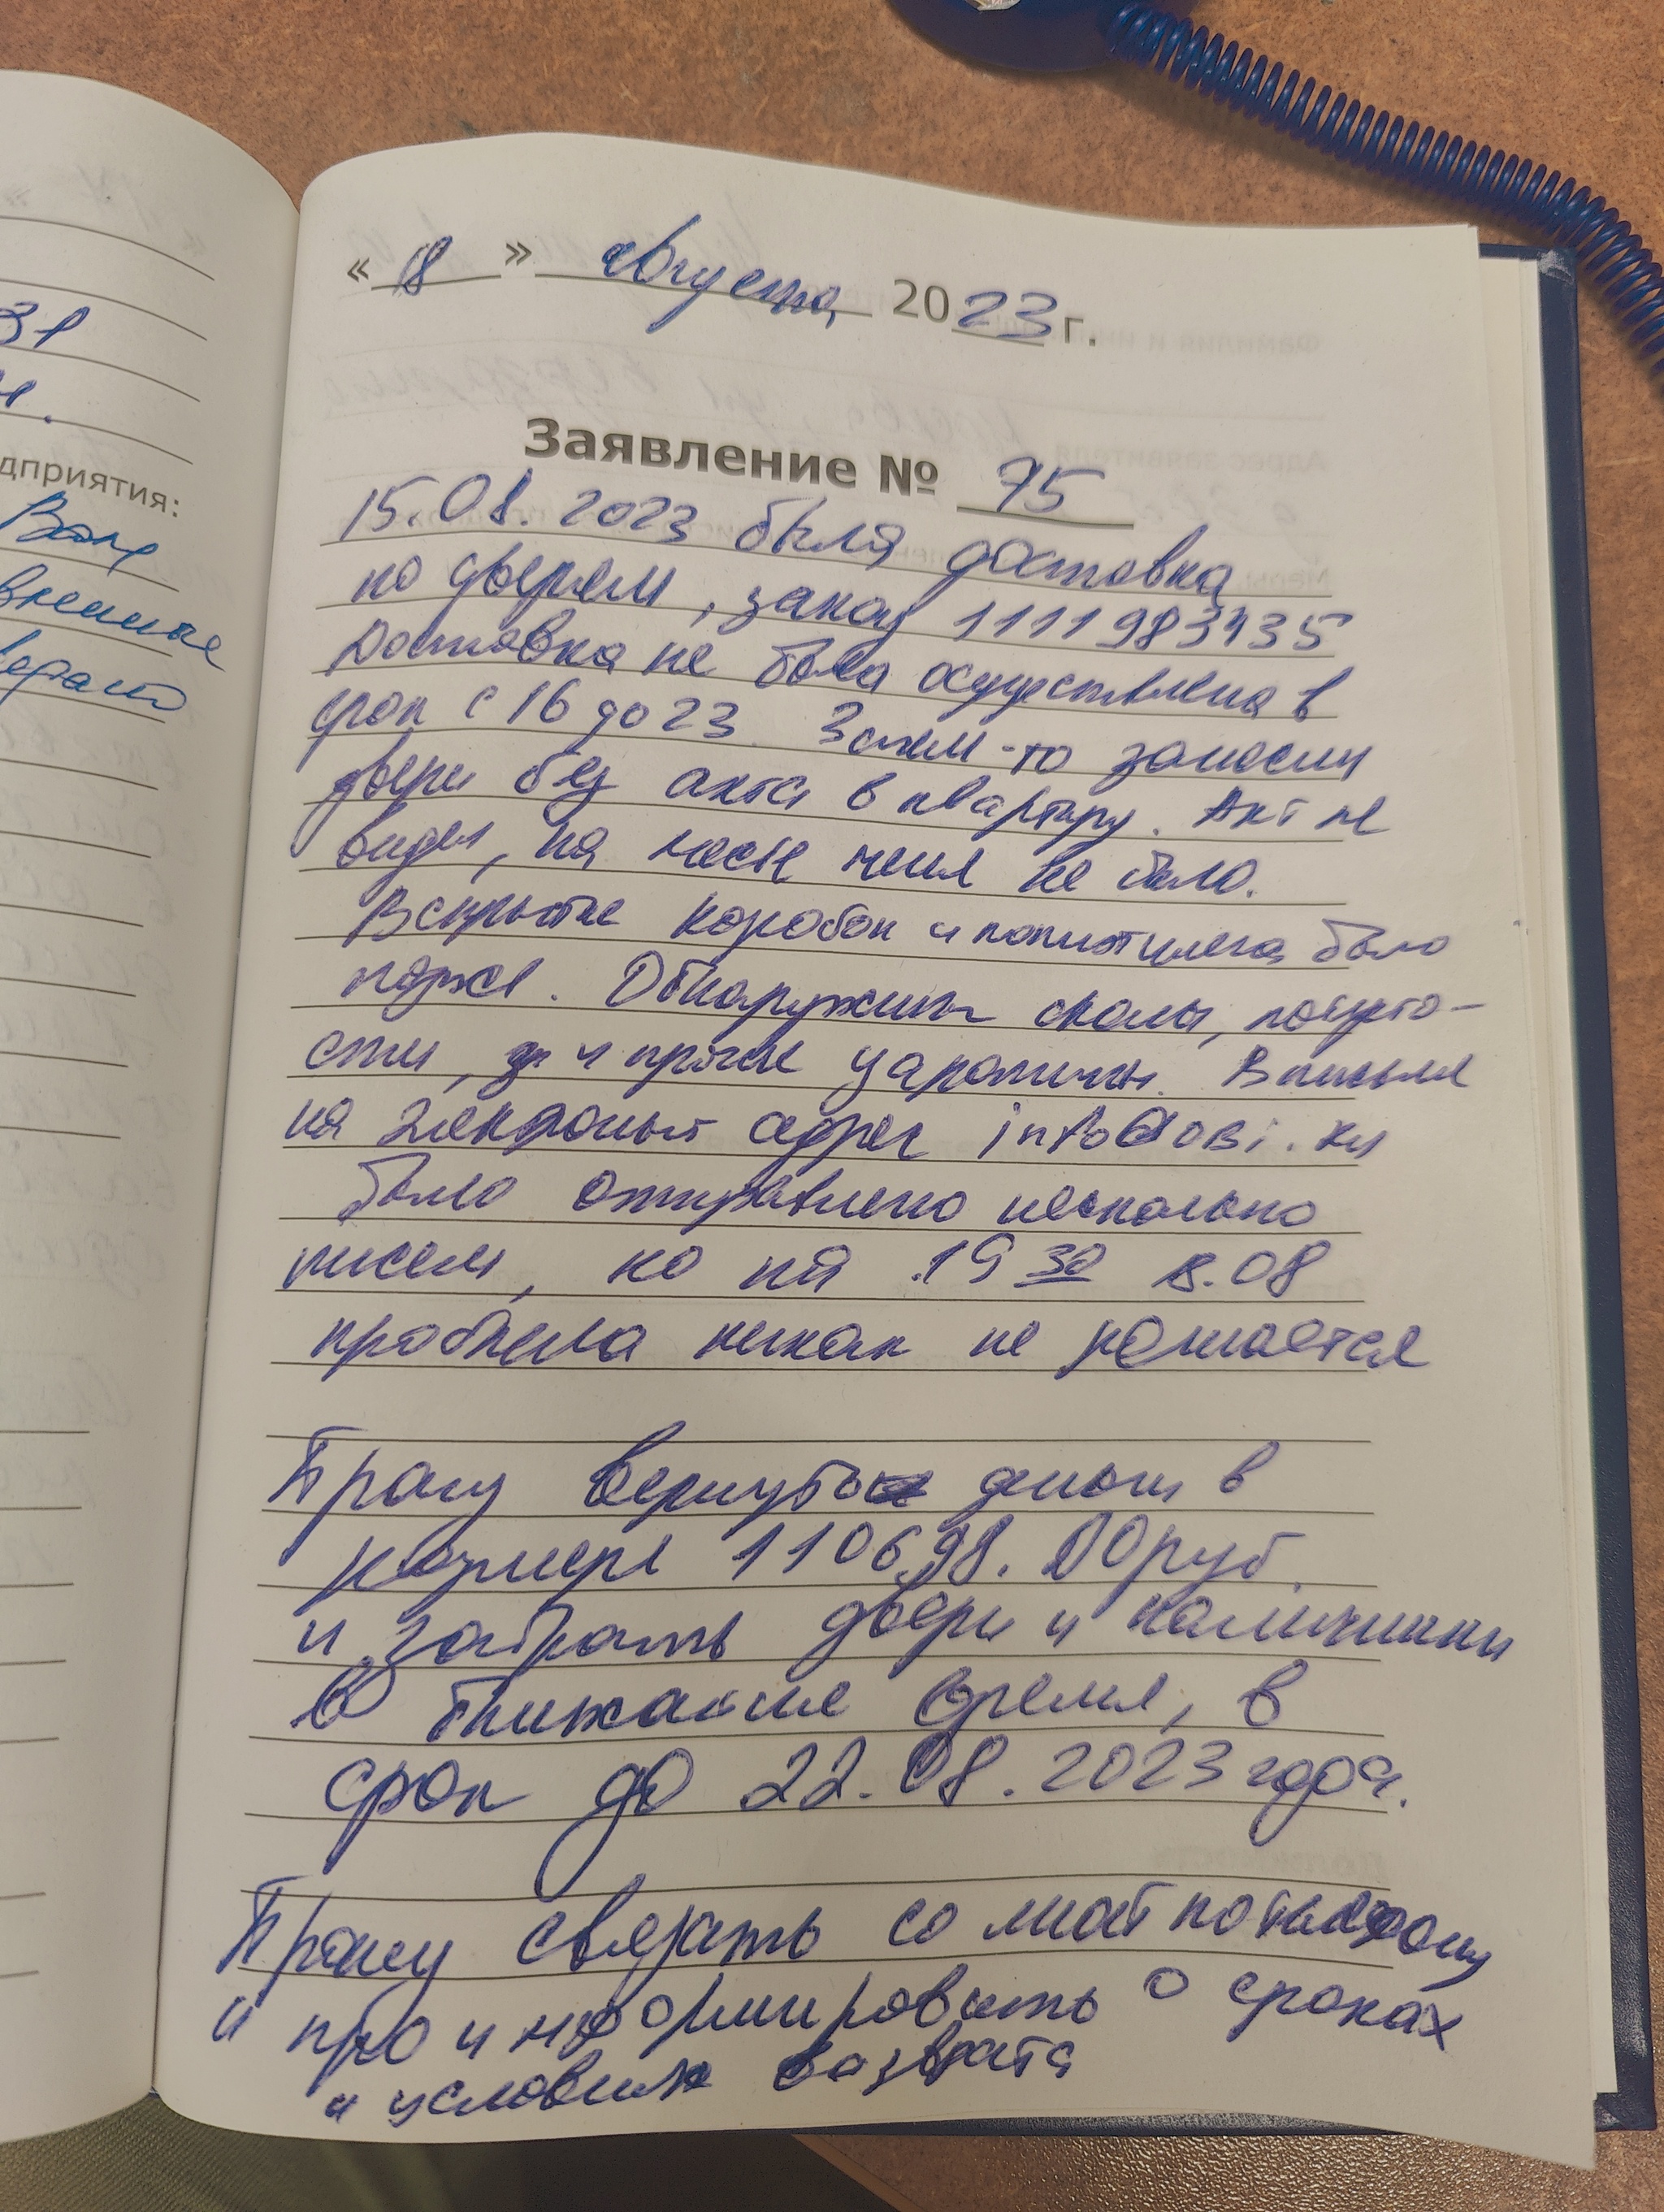 31
н.
дприятия:
Ваше
« 18 » августа 2023 г.
Заявление № 75
15.08.2023 была доставка
по дверям, заказ 1111983435
Доставка не была осуществлена в
срок с 16 до 23. Зачем-то занесли
двери без акта в квартиру. Акт не
видел, на месте меня не было.
Вскрытие коробок и полиэтилена было
позже. Обнаружили сколы, потерто-
сти, и прочие царапины. В письме
на электроный адрес info@OBI.ru
было отправлено несколько
писем, но на 19 30 18.08
проблема никак не решается
Прошу вернуть деньги в
размере 110698.00 руб.
и забрать двери и наличники
в ближайшие время, в
срок до 22.08.2023 года.
Прошу связать со мной по телефону
и проинформировать о сроках
и условиях возврата